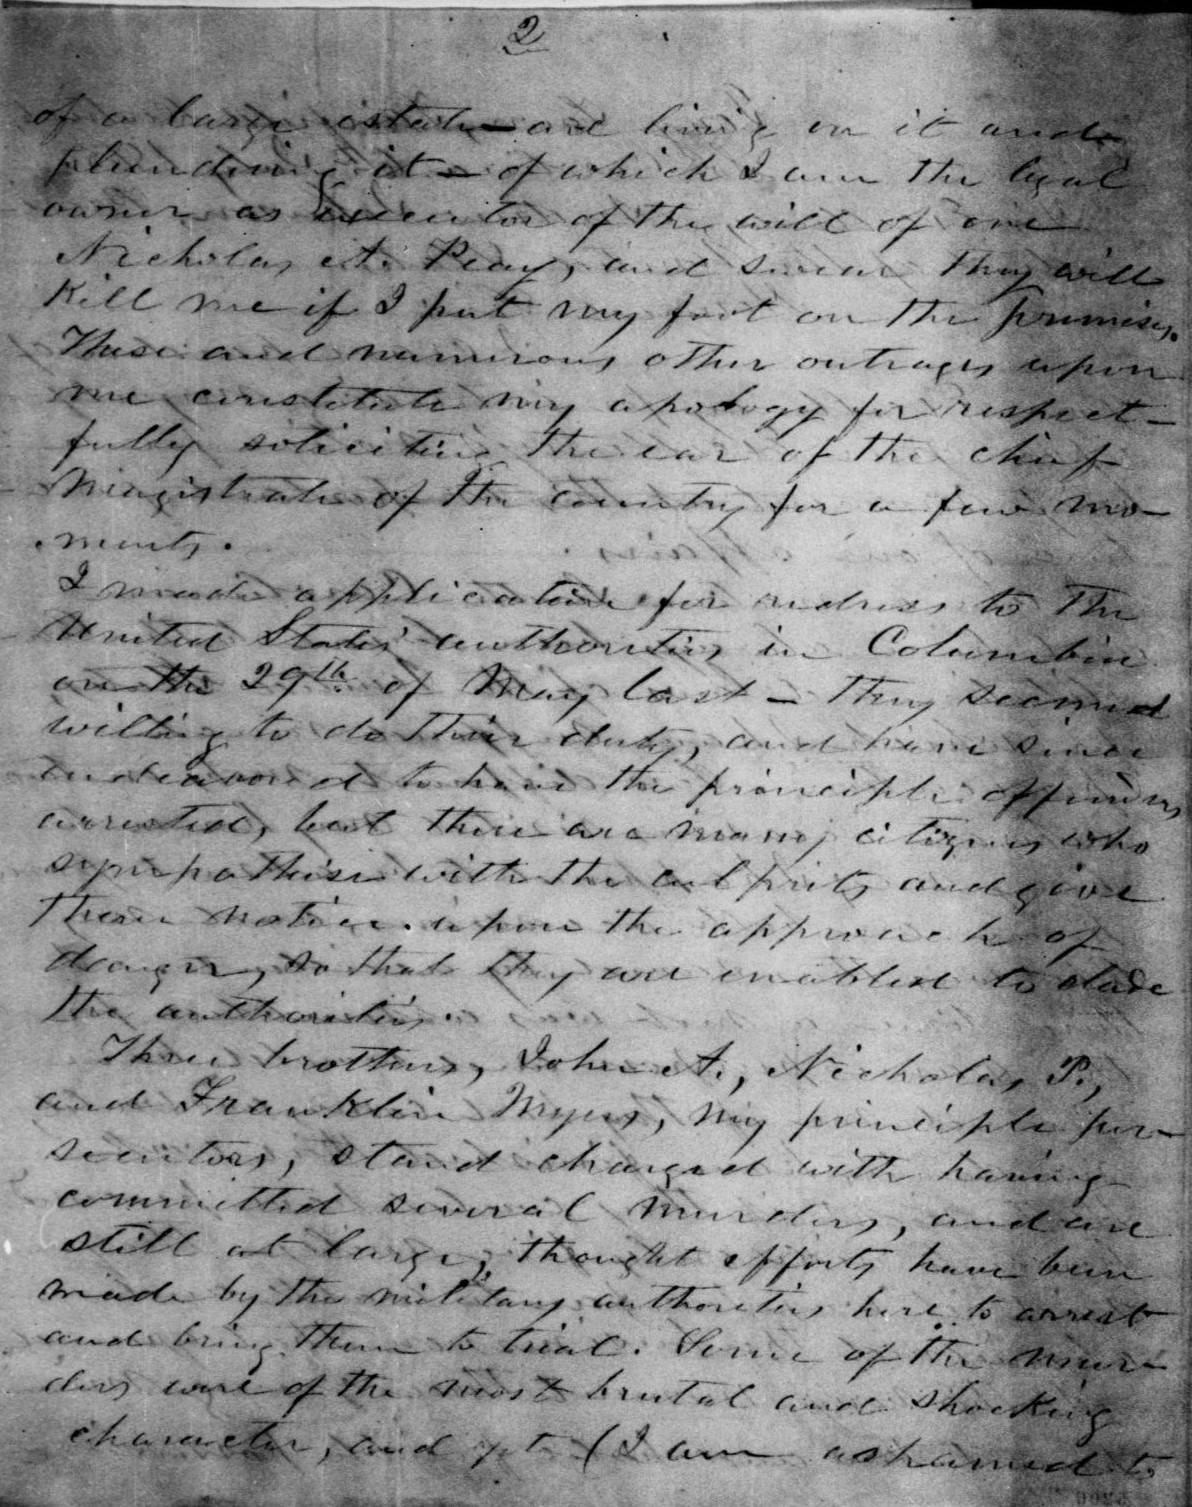 2
of a large estate — are living on it and
plundering it — of which I am the legal
owner as executor of the will of one
Nicholas A. Peay, and swear they will
kill me if I put my foot on the premises.
These and numerous other outrages upon
me constitute my apology for respect-
fully soliciting the ear of the chief
Magistrate of the country for a few mo-
ments.
I made application for redress to the
United States' authorities in Columbia
on the 29th of May last — they seemed
willing to do their duty, and have since
endeavored to have the principle offenders
arrested, but there are many citizens who
sympathise with the culprits and give
them notice upon the approach of
danger, so that they are enabled to elude
the authorities.
Three brothers, John A., Nicholas P.,
and Franklin Myers, my principle per-
secutors, stand charged with having
committed several murders, and are
still at large, thought efforts have been
made by the military authorities here to arrest
and bring them to trial. Some of the mur-
ders were of the most brutal and shocking
character, and yet (I am ashamed to